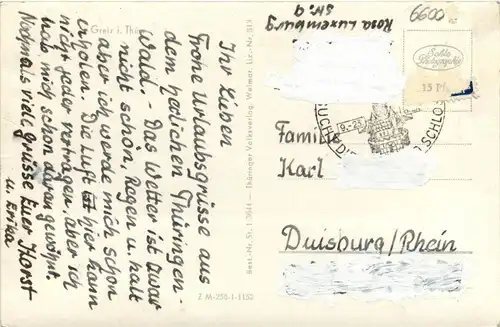 Greiz i. Thür.
Ihr Lieben
Frohe Urlaubsgrüsse aus
dem herlichen Thüringen-
wald - Das Wetter ist zwar
nicht schön, Regen u. kalt
aber ich werde mich schon
erholen. Die Luft ist hier kann
nicht jeder vertragen, aber ich
hab, mich schon daran gewöhnt.
Nochmals viel, Grüsse Euer Horst
u. Erika
Best.-Nr. St. 1 3644 — Thüringer Volksverlag, Weimar, Liz.-Nr. 313
Z M-258-1-1152
Rosa Luxemburg
str. 9
6600
Echte
Photographie
15 Pf
9.-23.
Famili
Karl
Duisburg/Rhein